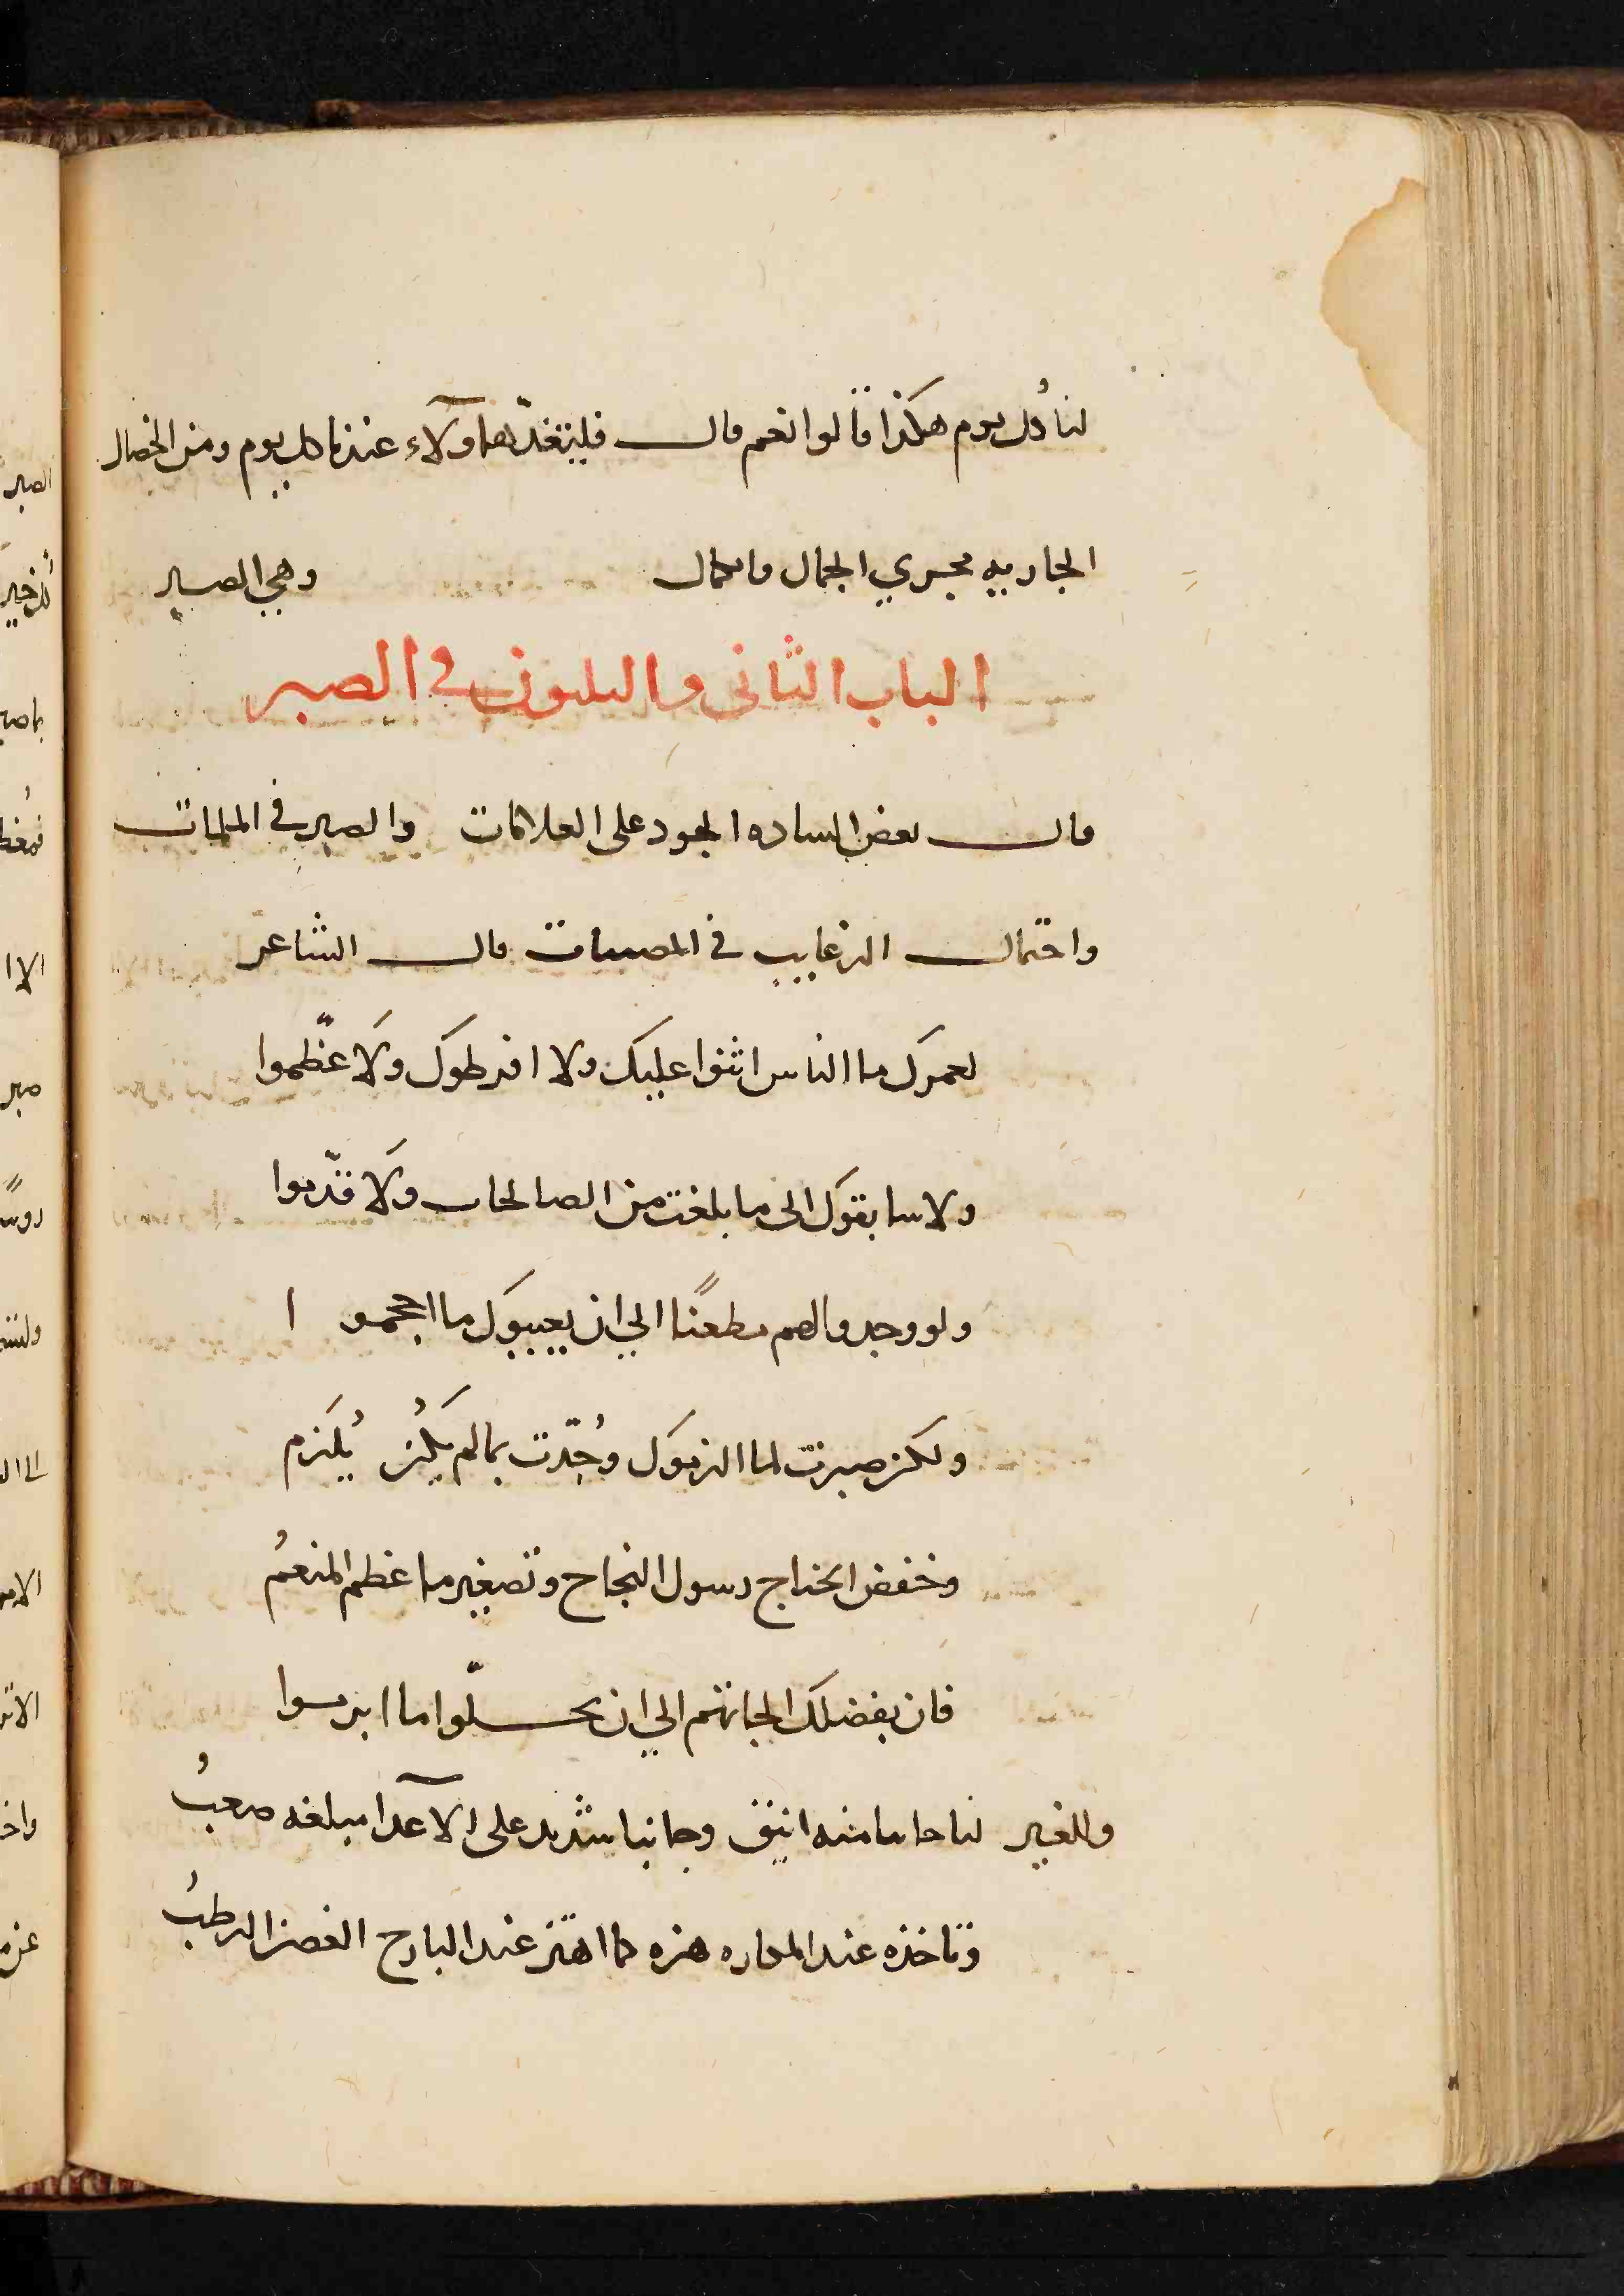 لنا كُل يوم هكذا قالوا نعم قال فليتغدّ هاولآء عندنا كل يوم ومن الخصال
الجاريه مجري الجمال والكمال وهي الصبر
الباب الثانى والثلثون فى الصبر
قال بعض الساده الجود على العلات والصبر في الملمات
واحتمال الرغايب في المصيبات قال الشاعر
لعمرك ما الناس اثنوا عليك ولا افرطوك ولَا عظّموا
ولا سابقوك الى ما بلغت من الصالحات ولَا قدّموا
ولو وجدوا لهم مطعنًا الي ان يعيبوك ما احجموا
ولكن صبرت لما الزموك وجُدّت بما لم يكُن يُلزم
وخفض الجناح رسول النجاح وتصغير ما عظم المنعمُ
فان بفضلك الجاتهم الي ان يحلّوا ما ابرموا
وللغير لنا جانبا منه انيق وجانبا شديد على الآعدا مبلغه صعبُ
وتاخذه عند المكاره هزه كما اهتز عند البارح الغصن الرطبُ